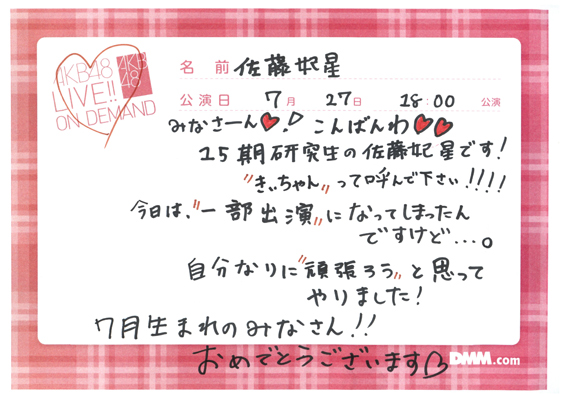 AKB48
LIVE!!
ON DEMAND
AKB
48
名 前 佐藤妃星
公演日 7月 27日 18:00 公演
みなさーん♥! こんばんわ♥♥
15期研究生の佐藤妃星です!
"きぃちゃん"って呼んで下さい!!!!
今日は、"一部出演"になってしまったん
ですけど...。
自分なりに"頑張ろう"と思って
やりました!
7月生まれのみなさん!!
おめでとうございます♡
DMM.com